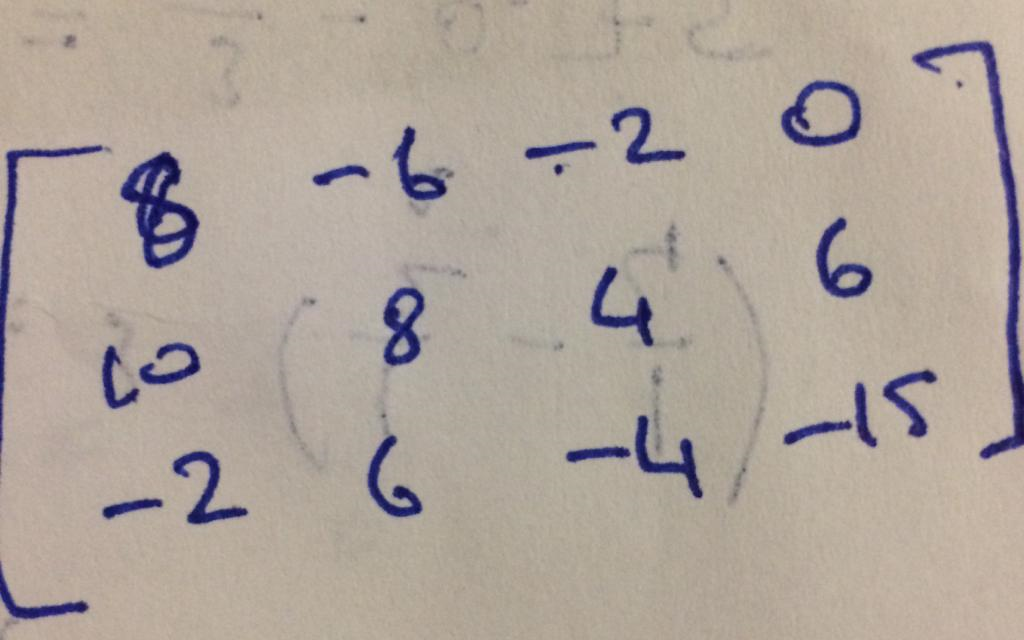 8 -6 -2 0
10 8 4 6
-2 6 -4 -15